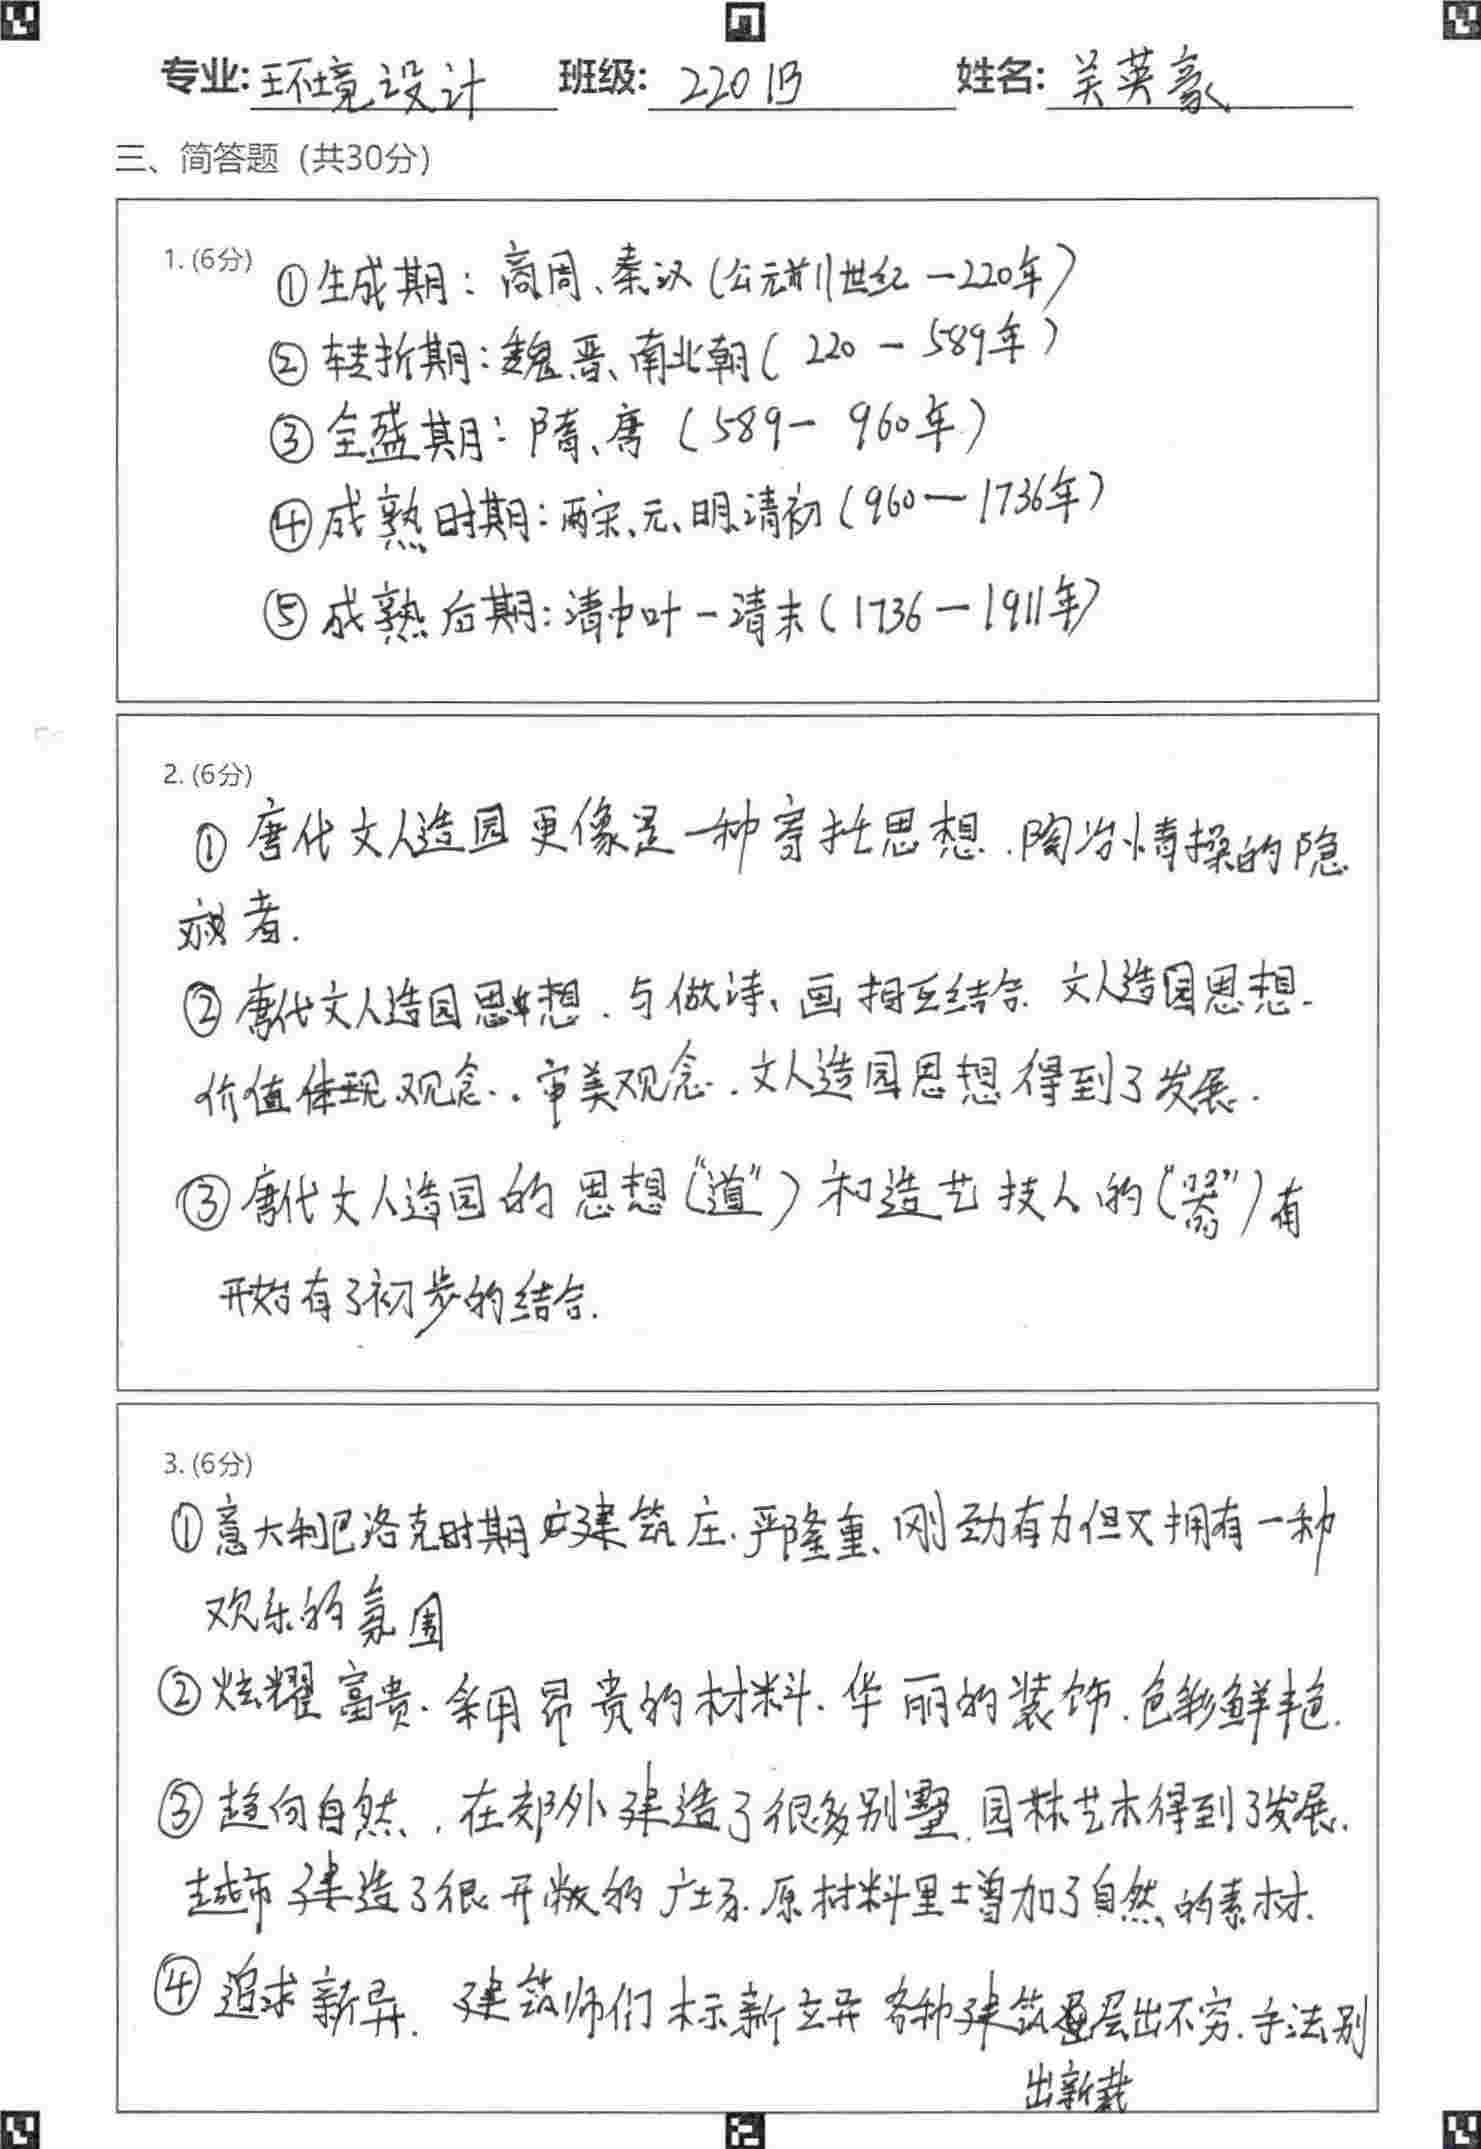 专业: 环境设计 班级: 2201B 姓名: 关英豪
三、简答题（共30分）
1. (6分)
①生成期：商周、秦汉（公元前11世纪一220年）
②转折期：魏、晋、南北朝（220一589年）
③全盛期：隋、唐（589一960年）
④成熟时期：两宋、元、明、清初（960一1736年）
⑤成熟后期：清中叶一清末（1736一1911年）
2. (6分)
①唐代文人造园更像是一种寄托思想、陶冶情操的隐
逸者.
②唐代文人造园思想、与做诗、画相互结合. 文人造园思想.
价值体现观念、审美观念、文人造园思想得到了发展.
③唐代文人造园的思想（“道”）和造艺技人的（“器”）有
开始有了初步的结合.
3. (6分)
①意大利巴洛克时期建筑庄、严隆重、刚劲有力但又拥有一种
欢乐的氛围
②炫耀富贵. 采用昂贵的材料. 华丽的装饰. 色彩鲜艳.
③趋向自然、在郊外建造了很多别墅, 园林艺术得到了发展.
城市建造了很开敞的广场. 原材料里增加了自然的素材.
④追求新异. 建筑师们标新立异 各种建筑层出不穷. 手法别
出新裁